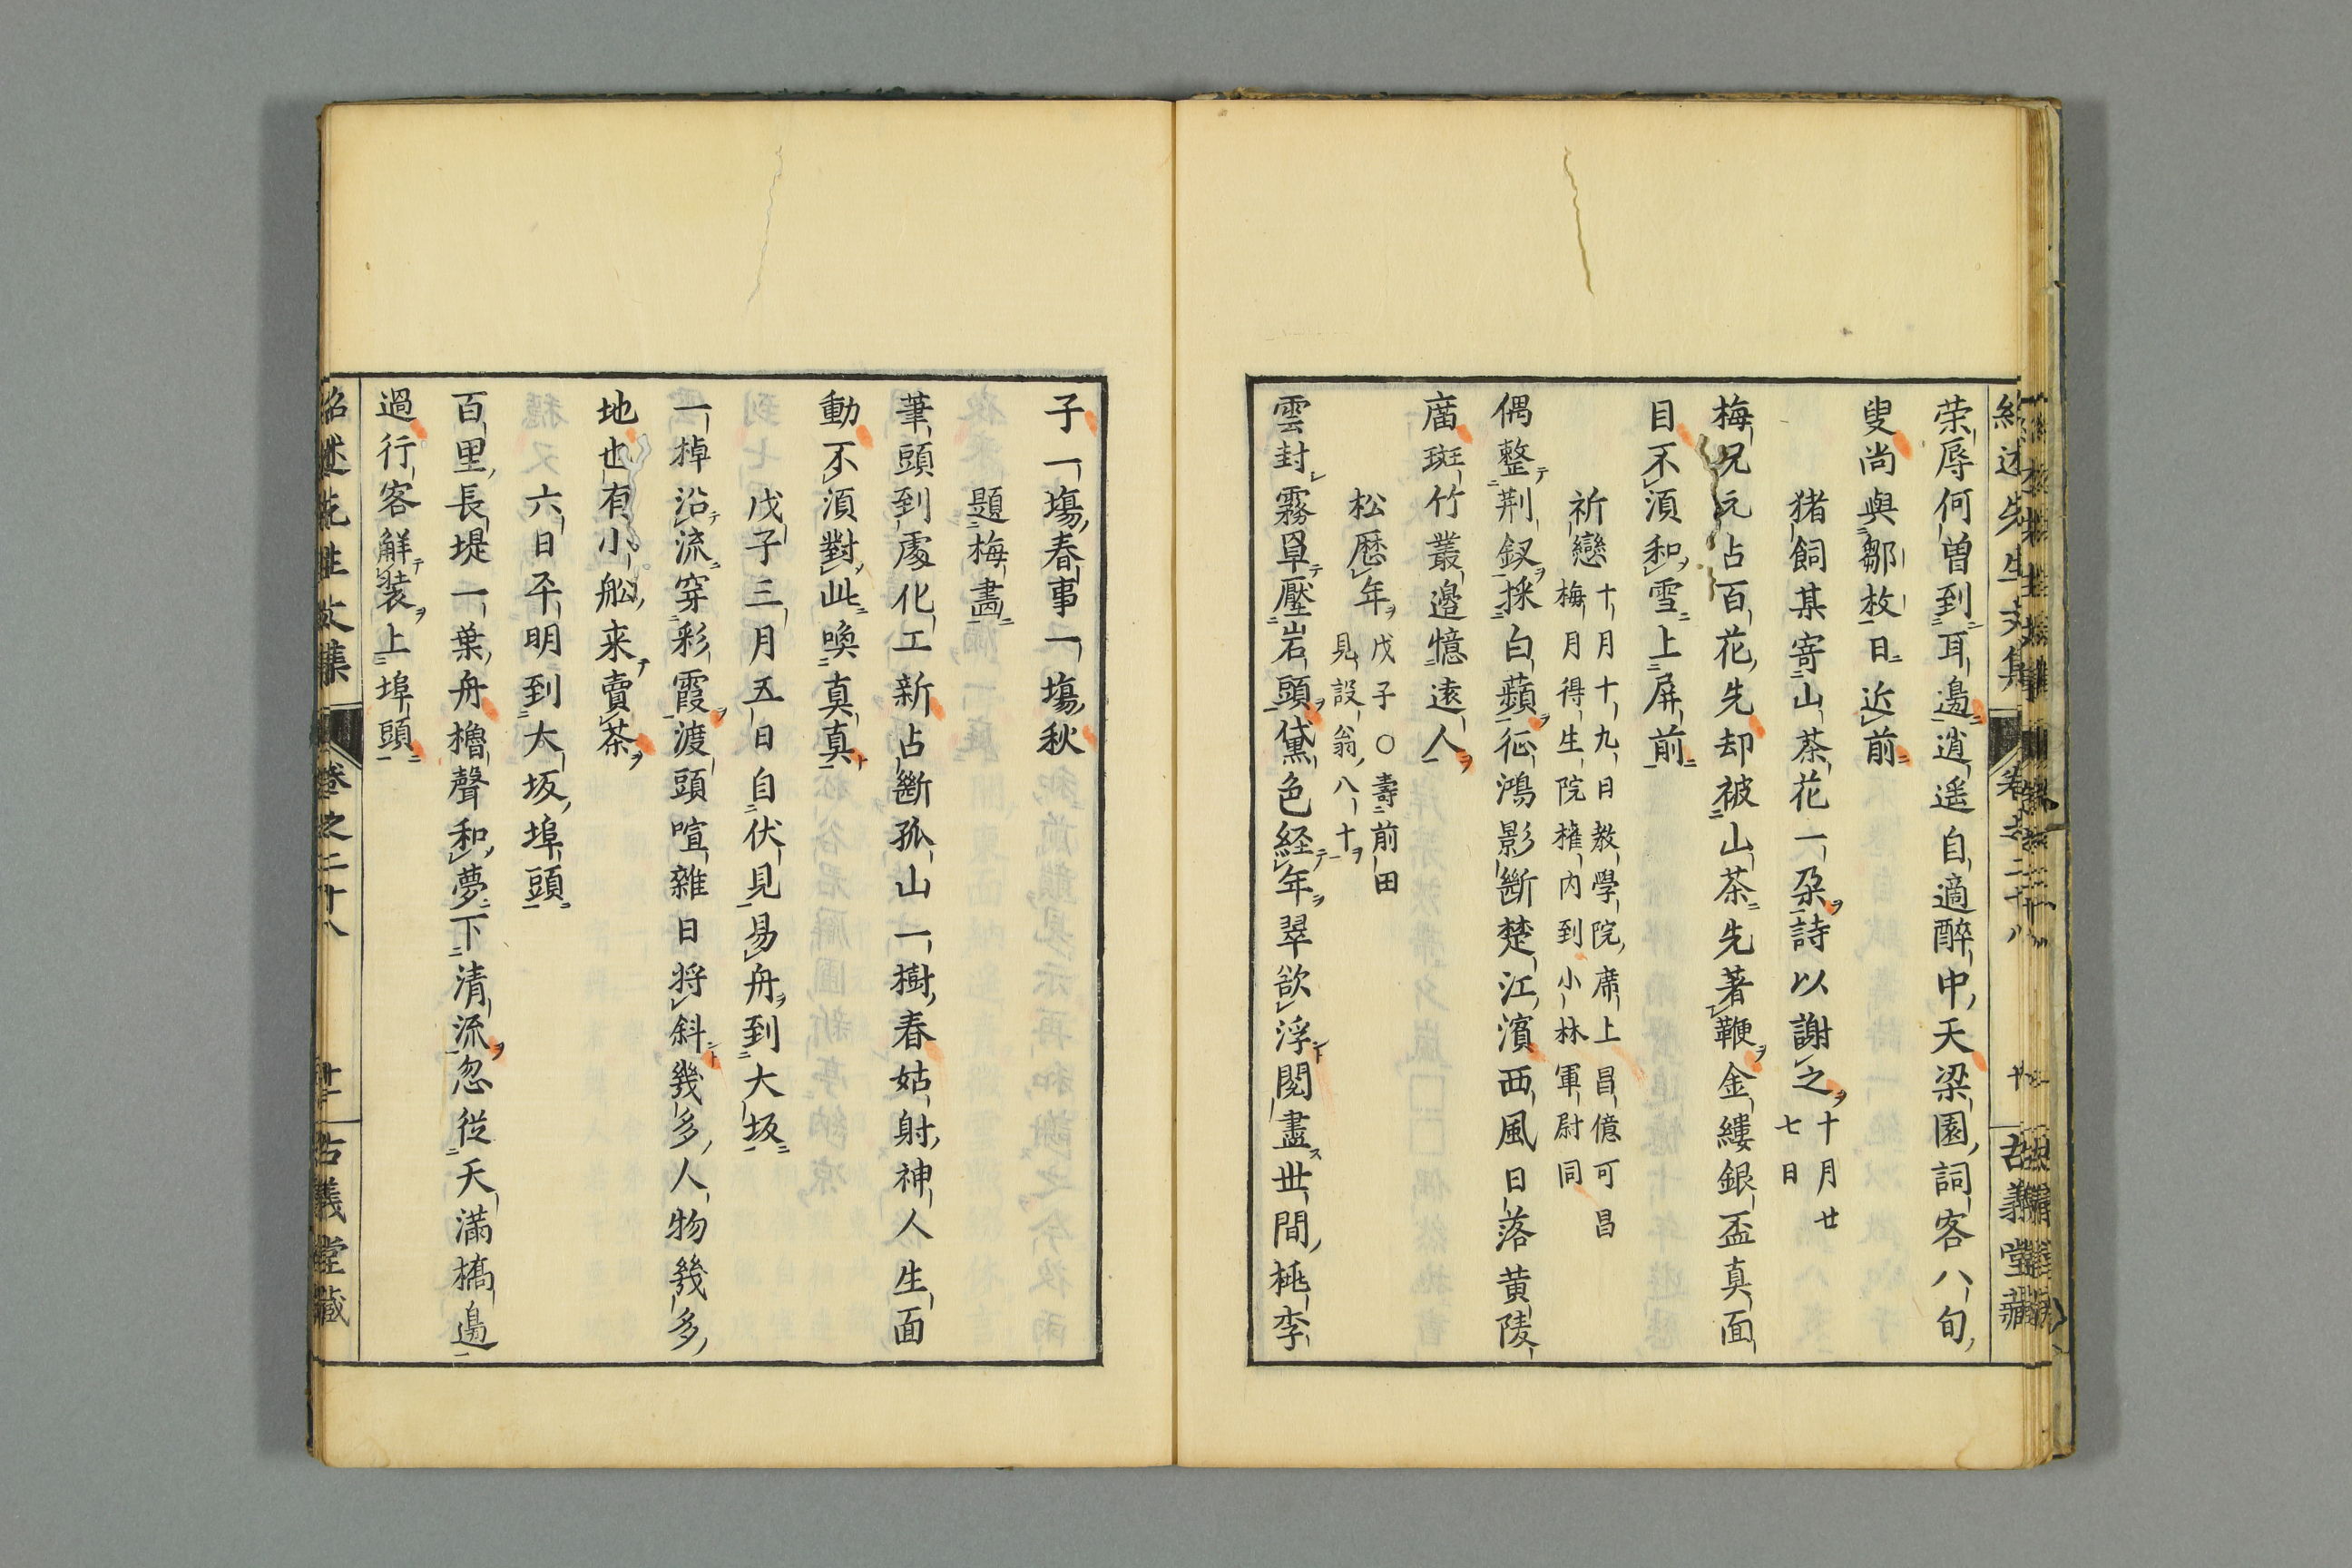 荣辱何曽到耳邉逍遥自適醉中天梁園詞客八旬
叟尚與鄒枚日近前
猪飼某寄山茶花一朶詩以謝之十月廿
七日
梅兄元占百花先却被山茶先著鞭金縷銀盃真面
目不須和雪上屏前
祈戀十月十九日教學院席上昌億可昌
梅月得生院権内到小林軍尉同
偶整荆釵採白蘋征鴻影斷楚江濱西風日落黄陵
廟斑竹叢邉憶遠人
松歴年戊子〇壽前田
見設翁八十
雲封霧罩壓岩頭黛色経年翠欲浮閲盡世間桃李
子一塲春事一塲秋
題梅畵
筆頭到處化工新占斷孤山一樹春姑射神人生面
動不須對此喚真真
戊子三月五日自伏見易舟到大坂
一棹沿流穿彩霞渡頭喧雜日将斜幾多人物幾多
地也有小舩来賣茶
六日平明到大坂埠頭
百里長堤一葉舟櫓聲和夢下清流忽従天滿橋邉
過行客觧装上埠頭
紹述先生文集 卷之二十八 古義堂藏